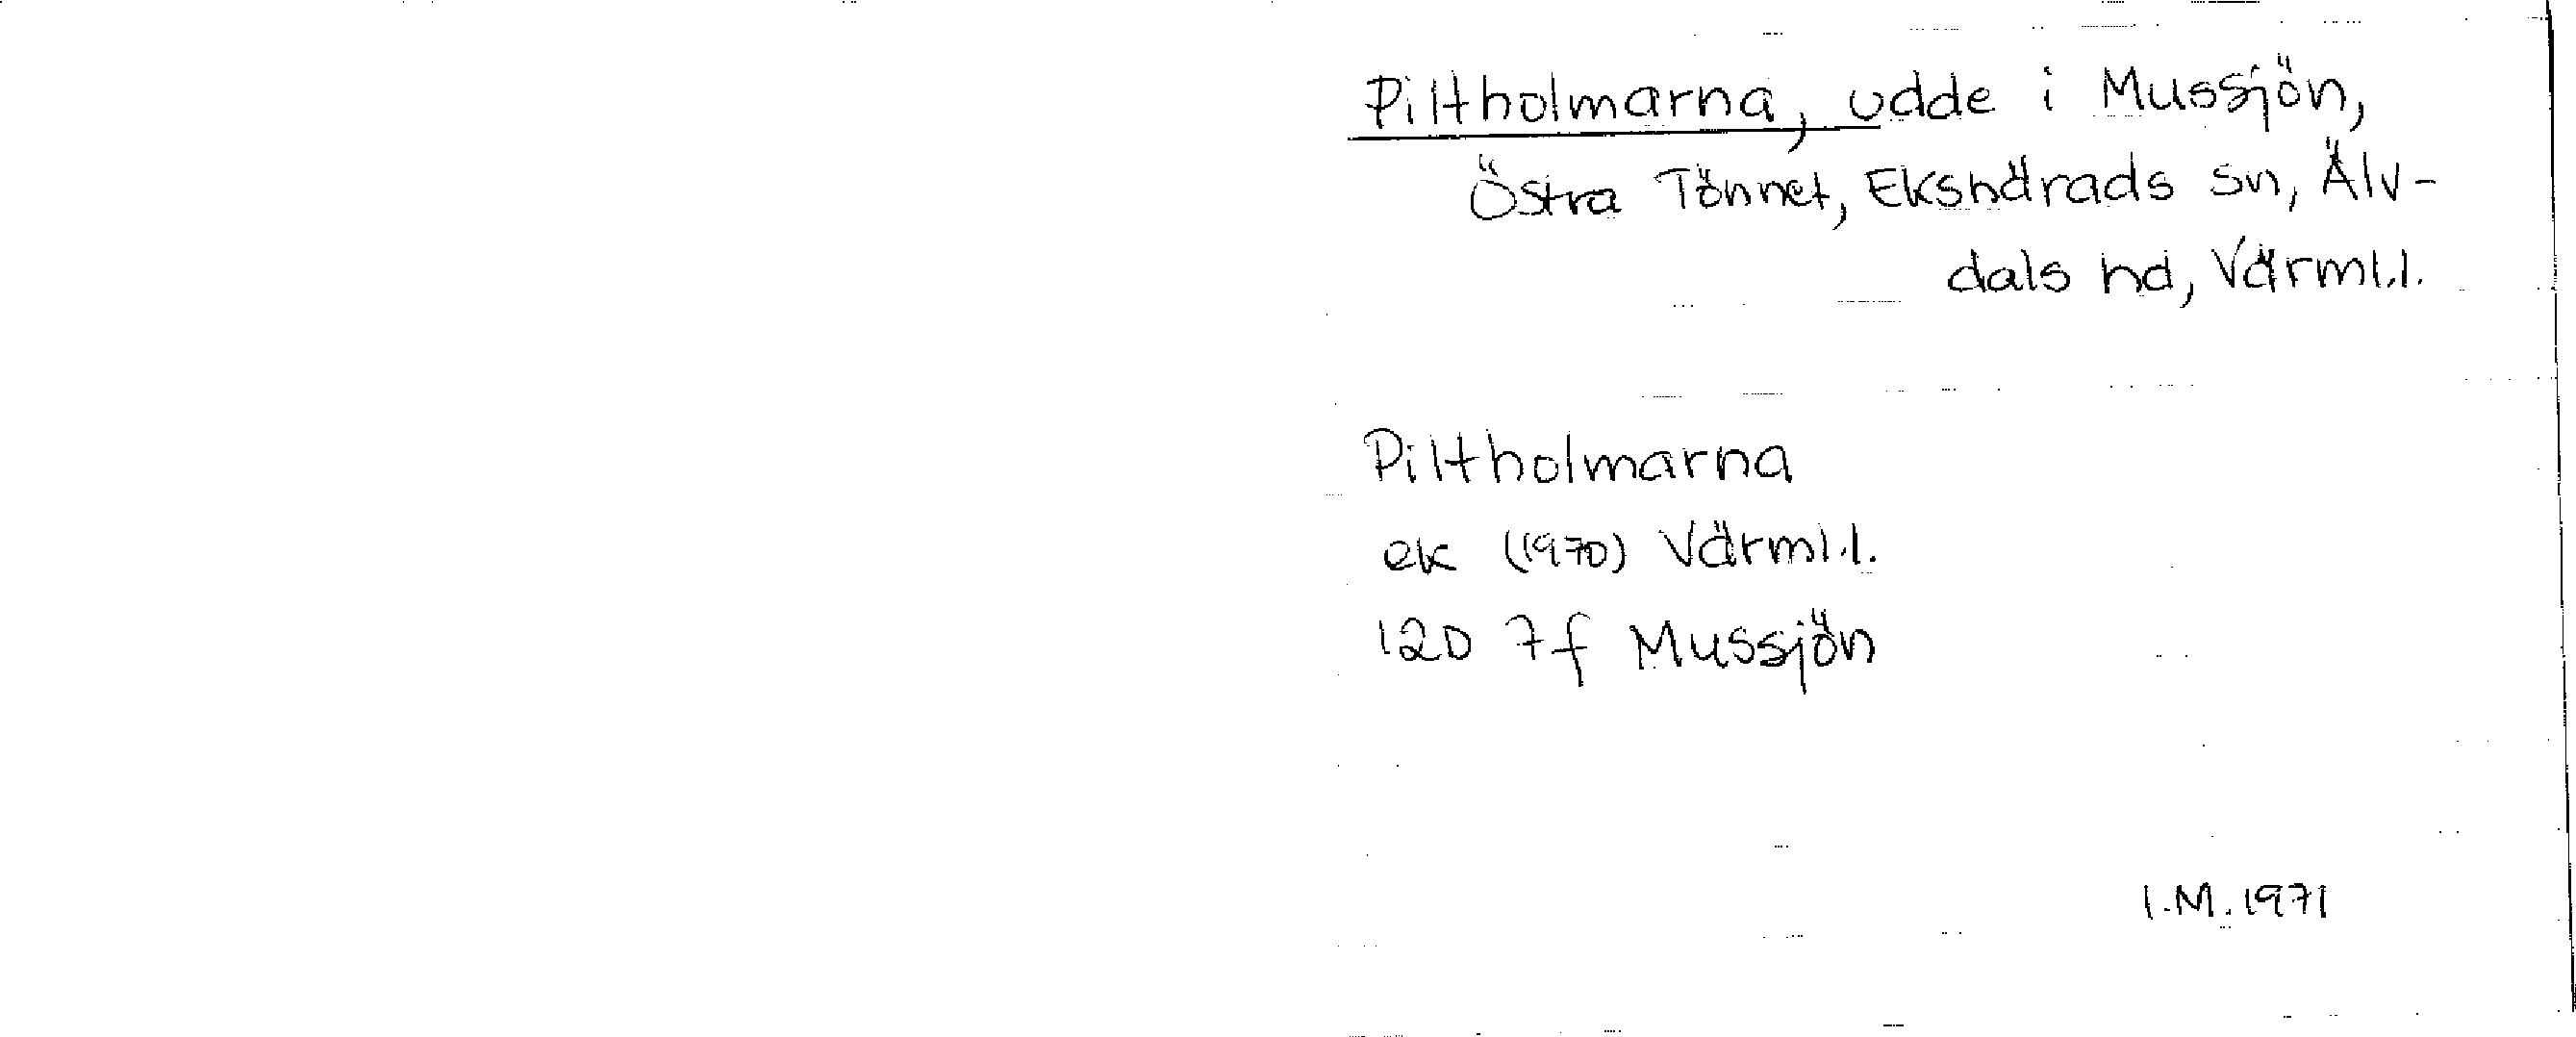 Piltholmarna, udde i Mussjön,
Östra Tönnet, Ekshärads sn, Älv-
dals hd, Värml.l.
Piltholmarna
ek (1970) Värml.l.
12D 7f Mussjön
I.M. 1971